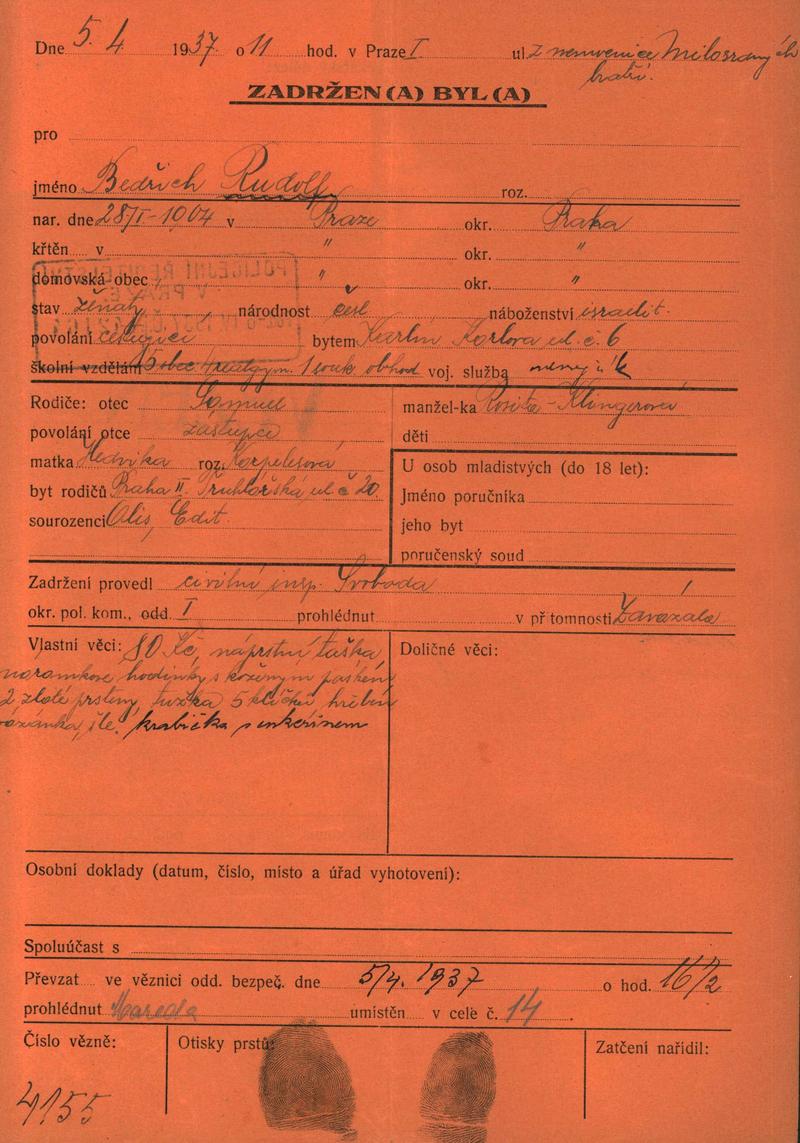 Dne 5. 4. 1937 o 11 hod. v Praze I ul. z nemocnice Milosrdných
bratří.
ZADRŽEN(A) BYL(A)
pro
jméno Bedřich Rudolf roz.
nar. dne 28/I-1904 v Praze okr. Praha
křtěn v " okr. "
domovská obec " okr. "
stav ženatý národnost česk náboženství israelit.
povolání bytem Karlín Karlova ul. č. 6
školní vzdělání 5 obec. 4 reál. gym. 1 souk. obchod voj. služba
Rodiče: otec Samuel manžel-ka Rosita - Klingerová
povolání otce zástupce děti
matka Hedvika roz. Karpelesová
U osob mladistvých (do 18 let):
byt rodičů Praha II. Truhlářská ul. č. 20 Jméno poručníka
sourozenci Alis, Edit. jeho byt
poručenský soud
Zadržení provedl civilní insp. Svoboda
okr. pol. kom., odd. I prohlédnut v přítomnosti Zavázala
Vlastní věci: 80 Kč, náprsní taška Doličné věci:
náramkové hodinky s koženým páskem
2 zlaté prsteny, tužka 5 klíčků hřeben
krabička s
Osobní doklady (datum, číslo, místo a úřad vyhotovení):
Spoluúčast s
Převzat ve věznici odd. bezpeč. dne 5/4. 1937 o hod. 16 1/2
prohlédnut umístěn v cele č. 14.
Číslo vězně: Otisky prstů: Zatčení nařídil:
4155